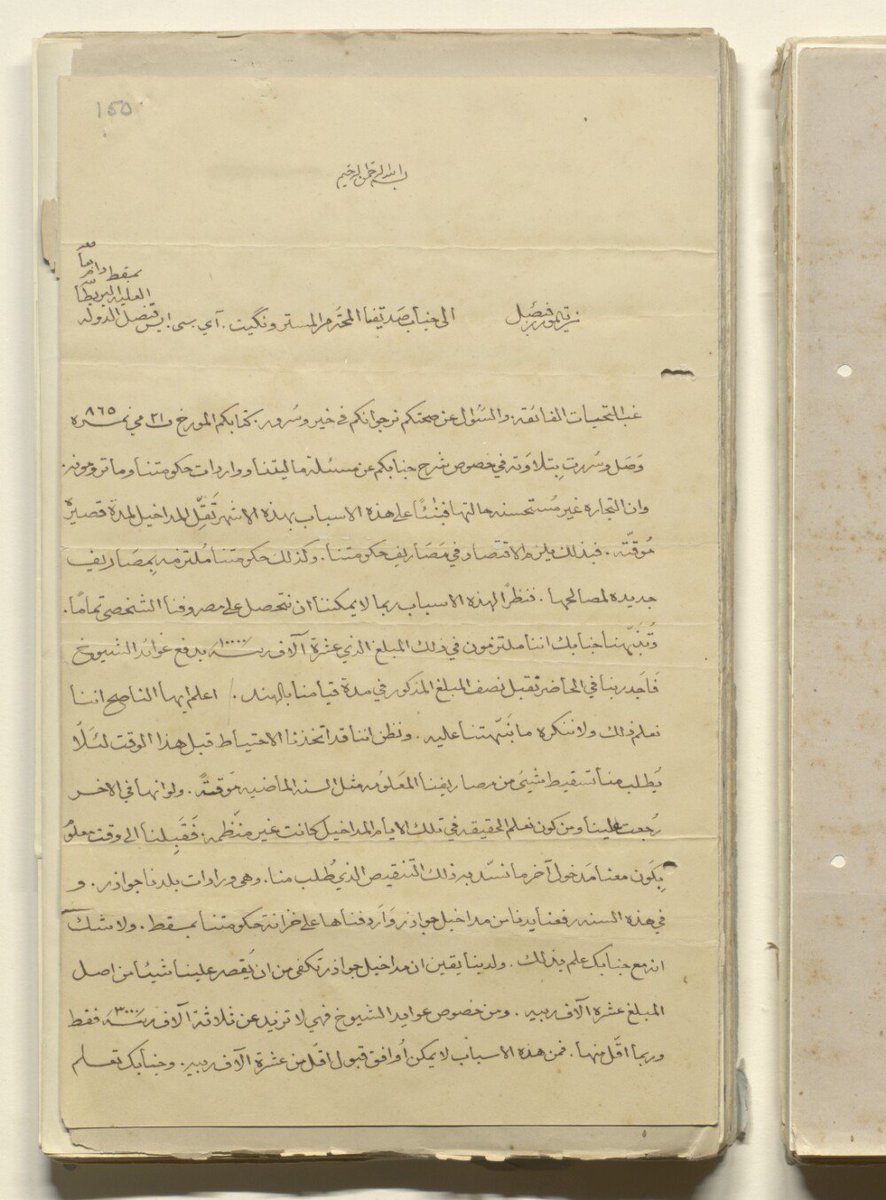 150
بسم الله الرحمن الرحيم
من تيمور بن فيصل الى جناب صديقنا المحترم المستر ونگيت. آي. سي. ايس قنصل الدولة
العلية البريطانية
بمسقط دام بقاه
غب التحيات الفائقة والسّؤال عن صحتكم نرجو انكم في خير وسُرور. كتابكم المورخ ٢١ مي نمره ٨٦٥
وَصَل وسُررت بِتلاوته في خصوص شرح جنابكم عن مسئلة ماليتنا وواردات حكومتنا وما ترومونه.
وان التجاره غير مُستحسنه حالتها فبنًاءً على هذه الاسباب بهذه الاشهر تَقلّ المداخيل لمدة قصيرة
مُوقّته. فبذلك يلزم الاقتصاد في مَصَاريف حكومتنا. وكذلك حكومتنا مُلتزمه بِمصَاريف
جديده لمصالحها. فنظرًا لهذه الاسباب ربما لا يمكننا ان نتحصل على مصروفنا الشخصي تمامًا.
ونَبّهنا جنابك اننا ملتزمون في ذلك المبلغ الذي عشرة آلاف ربيه ١٠٠٠٠ بدفع عَوائد الشيوخ
فَاَجدر بنا في الحاضر تقبل نصف المبلغ المذكور في مدة قيامنا بالهند. / اعلم ايها الناصح اننا
نعلم ذلك ولا ننكره ما نَبّهتنا عليه. ونظن اننا قد اتخذنا الاحتياط قبل هذا الوقت لئَلّا
يُطلب منا تسقيط شيئ من مصاريفنا المعَلومه مثل السنه الماضيه مَوقتةً. ولو انها في الاخر
رُجعت علينا ومن كون نعلم الحقيقه في تلك الايام المداخيل كانت غير منّظمه. فَقَبِلنا الى وقت معلوم
يِكون معنا مَدخول آخر ما نسّد به ذلك التنقيص الذي طُلب منا. وهي واردات بلدنا جوادر. و
في هذه السنه رفعنا يدنا من مداخيل جوادر وَاَردفناها على خزانة حكومتنا بمسقط. ولا شك
انه مع جنابك علم بذلك. ولدينا يقين ان مداخيل جوادر تكفى من ان يُقصر علينا شيئا من اصل
المبلغ عشره آلاف ربيه. ومن خصوص عوايد المشيوخ فهي لا تزيد عن ثلاثة آلاف ربيه ٣٠٠٠ فقط
وربما اقّل منها. فمن هذه الاسباب لا يمكن اُوافق قبول اقلّ من عشرة آلاف ربيه. وجنابك تعلم